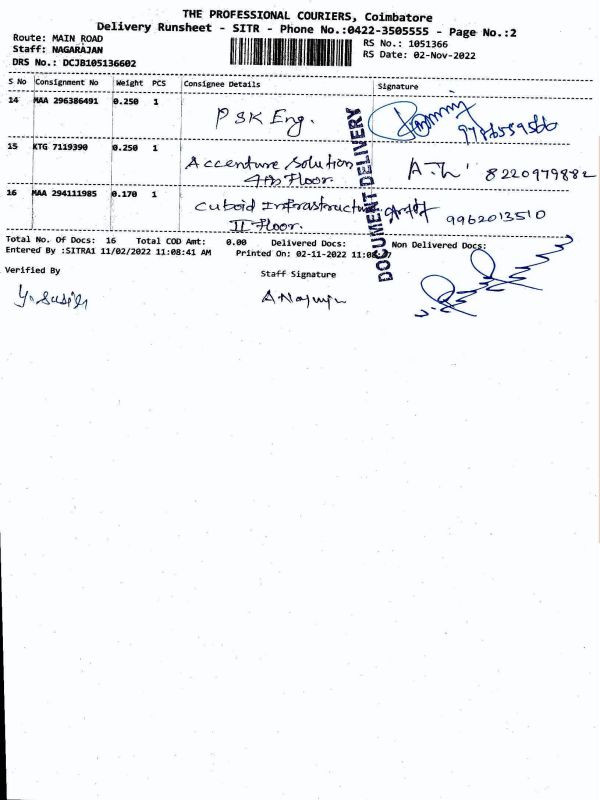 THE PROFESSIONAL COURIERS, Coimbatore
Delivery Runsheet - SITR - Phone No.:0422-3505555 - Page No.:2
Route: MAIN ROAD
Staff: NAGARAJAN
DRS No.: DCJB105136602
RS No.: 1051366
RS Date: 02-Nov-2022
S No Consignment No Weight PCS Consignee Details Signature
14 MAA 296386491 0.250 1 PSK Eng.
15 KTG 7119390 0.250 1 Accenture Solution 8220979882
4th Floor.
16 MAA 294111985 0.170 1 Cuboid Infrastructure 9962013510
II Floor.
DOCUMENT DELIVERY
Total No. Of Docs: 16 Total COD Amt: 0.00 Delivered Docs: Non Delivered Docs:
Entered By :SITRA1 11/02/2022 11:08:41 AM Printed On: 02-11-2022
Verified By Staff Signature